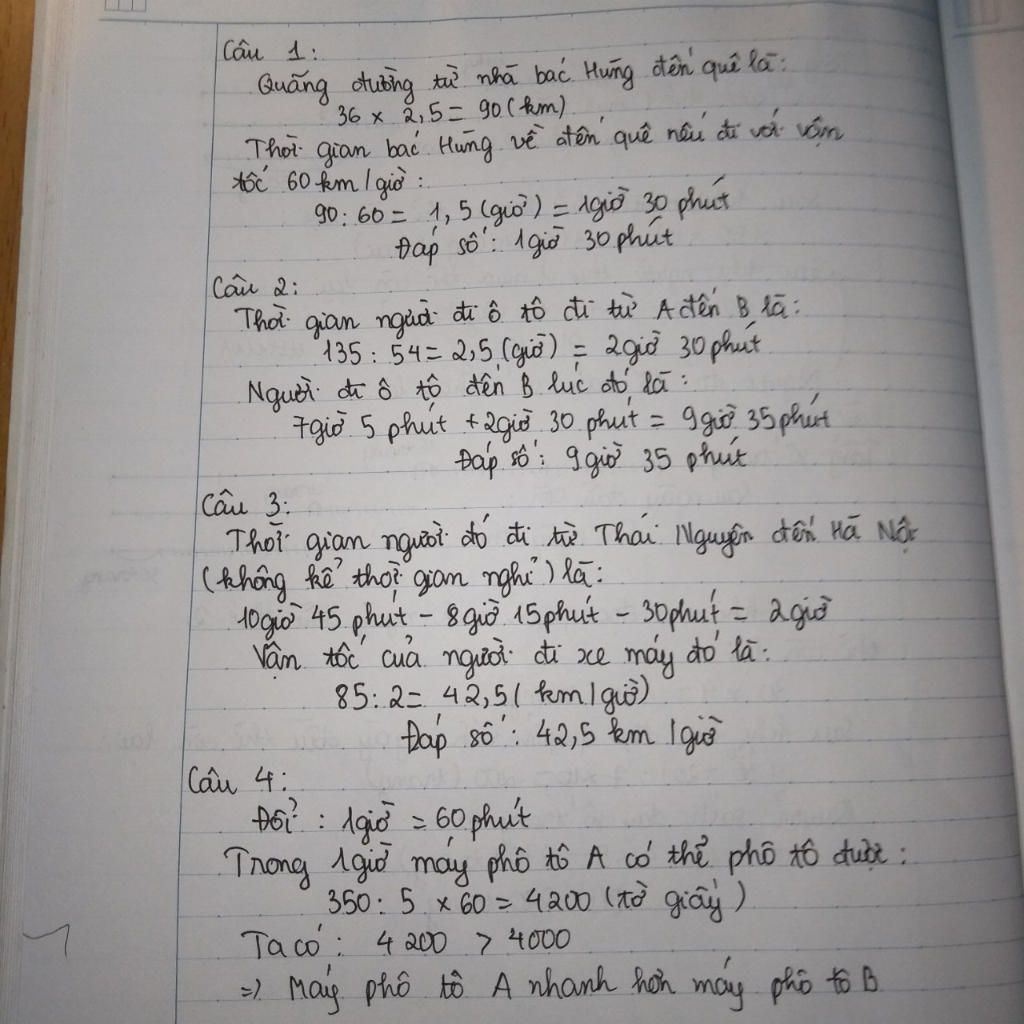 Câu 1:
Quãng đường từ nhà bác Hùng đến quê là:
36 x 2,5 = 90 (km)
Thời gian bác Hùng về đến quê nếu đi với vận
tốc 60 km/giờ:
90 : 60 = 1,5 (giờ) = 1giờ 30 phút
Đáp số : 1giờ 30 phút
Câu 2:
Thời gian người đi ô tô đi từ A đến B là:
135 : 54 = 2,5 (giờ) = 2giờ 30 phút
Người đi ô tô đến B lúc đó là :
7giờ 5 phút + 2giờ 30 phút = 9giờ 35 phút
Đáp số : 9giờ 35 phút
Câu 3:
Thời gian người đó đi từ Thái Nguyên đến Hà Nội
(không kể thời gian nghỉ) là:
10giờ 45 phút - 8giờ 15phút - 30phút = 2giờ
Vận tốc của người đi xe máy đó là:
85 : 2 = 42,5 ( km/giờ)
Đáp số : 42,5 km/giờ
Câu 4:
Đổi : 1giờ = 60 phút
Trong 1giờ máy phô tô A có thể phô tô được :
350 : 5 x 60 = 4200 (tờ giấy)
Ta có : 4 200 > 4000
=> Máy phô tô A nhanh hơn máy phô tô B